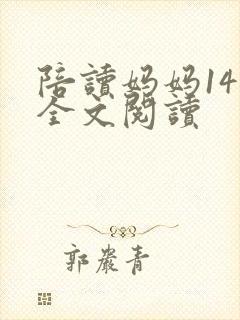 陪讀媽媽14
全文閱讀
郭嚴青